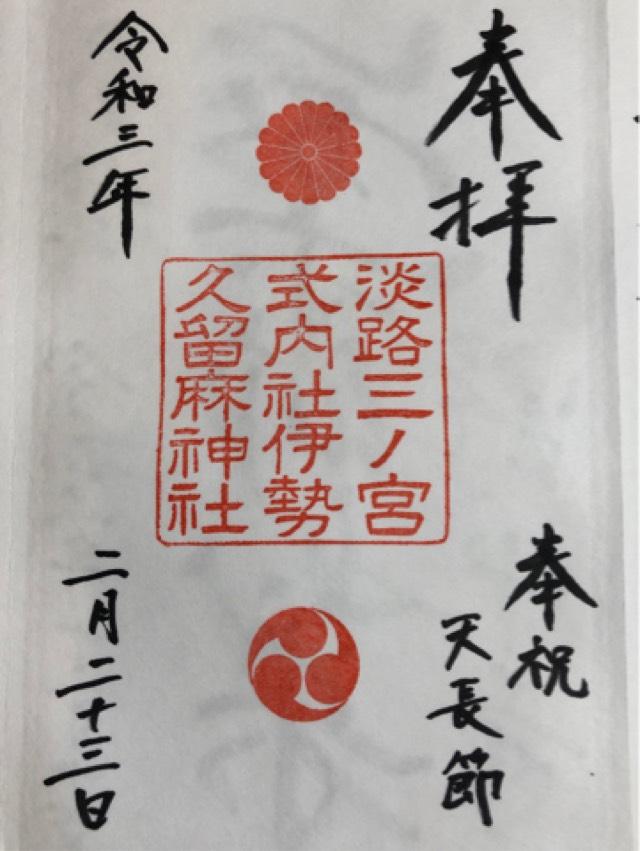 奉拝
奉祝
天長節
淡路三ノ宮
式内社伊勢
久留麻神社
令和三年
二月二十三日